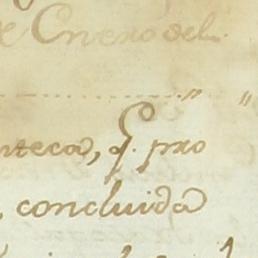 de Enero del
nteca, q. pro
, concluida